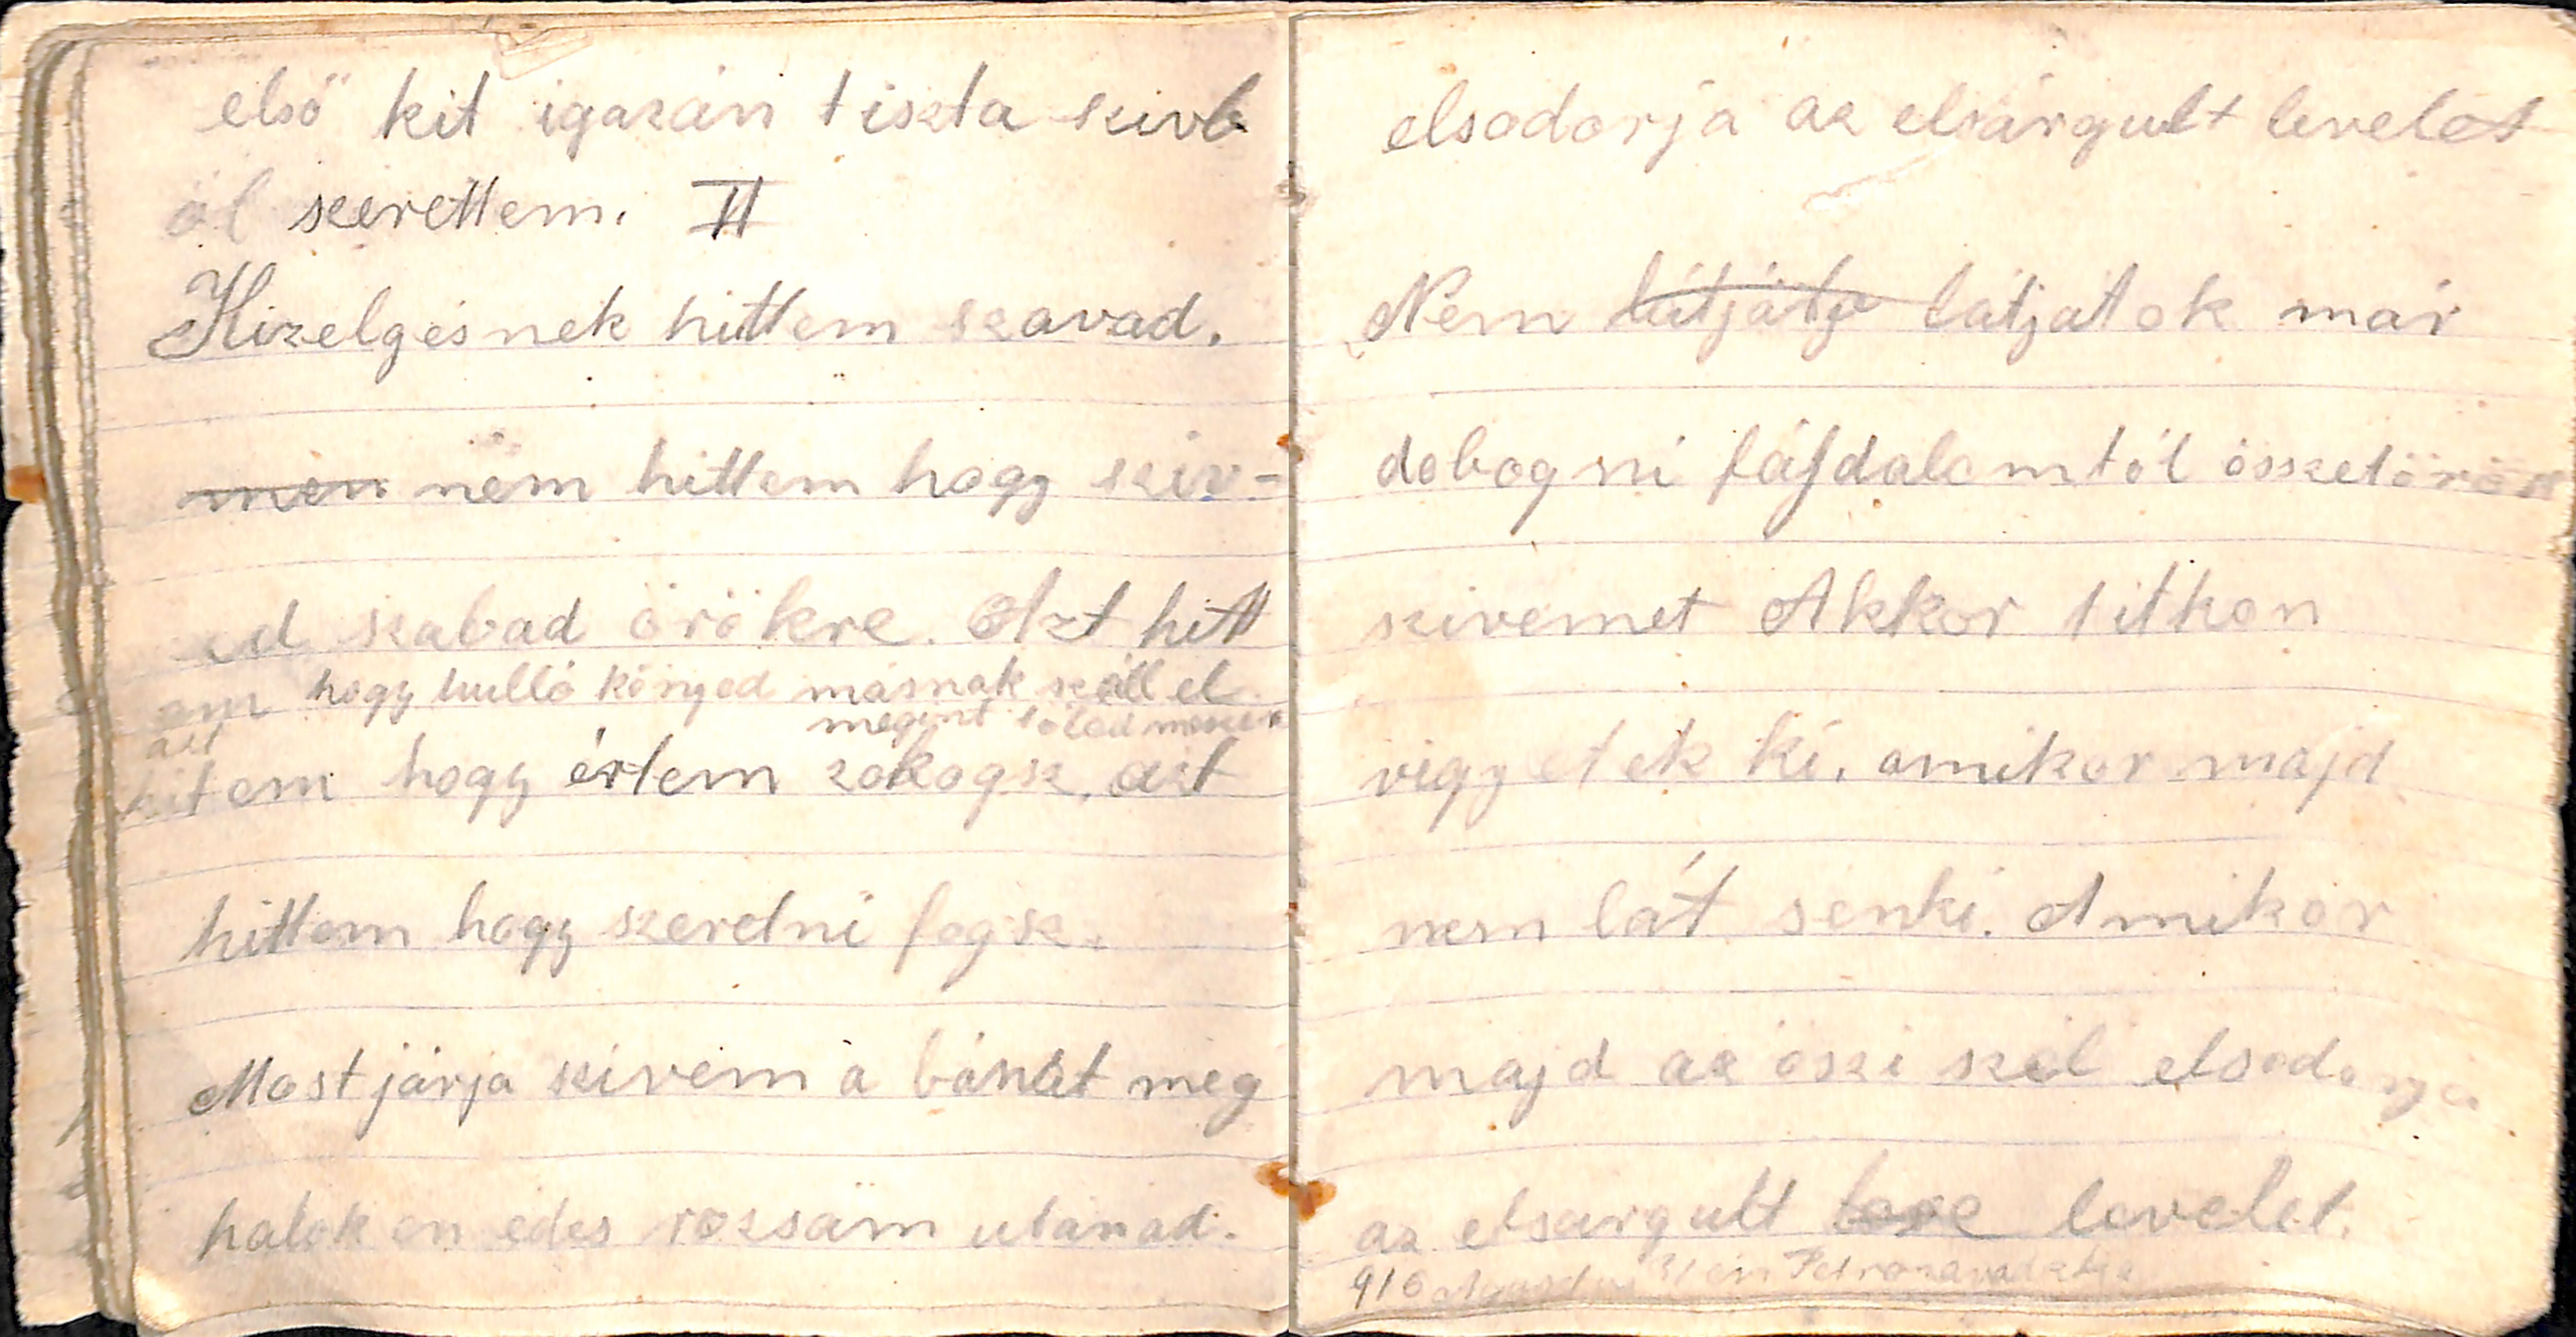 első kit igazán tiszta szivb
öl szerettem. II
Hizelgésnek hittem szavad.
men nem hittem hogy sziv-
ed szabad örökre. Azt hitt
em hogy hulló könyed másnak száll el
megint tőled
azt
hitem hogy értem zokogsz, azt
hittem hogy szeretni fogsz.
Most járja szivem a bánat meg
halok en edes rozsám utánad.
elsodorja az elsárgult levelet
Nem látjáto látjátok már
dobogni fájdalomtól összetörött
szivemet Akkor titkon
vigyetek ki, amikor majd
nem lát senki. Amikor
majd az öszi szél elsodorja
az elsargult leve levelet.
916